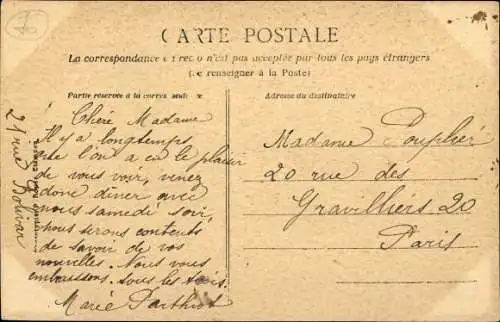 CARTE POSTALE
La correspondance au recto n'est pas acceptée par tous les pays étrangers
(Se renseigner à la Poste)
Partie réservée à la corres
Adresse du destinataire
Chère Madame
Il y a longtemps
que l'on a eu le plaisir
de vous voir, venez
donc dîner avec
nous samedi soir,
nous serons contents
de savoir de vos
nouvelles. Nous vous
embrassons tous les trois.
Marie
21 rue Bolivar
Madame Pouplié
20 rue des
Gravilliers 20
Paris